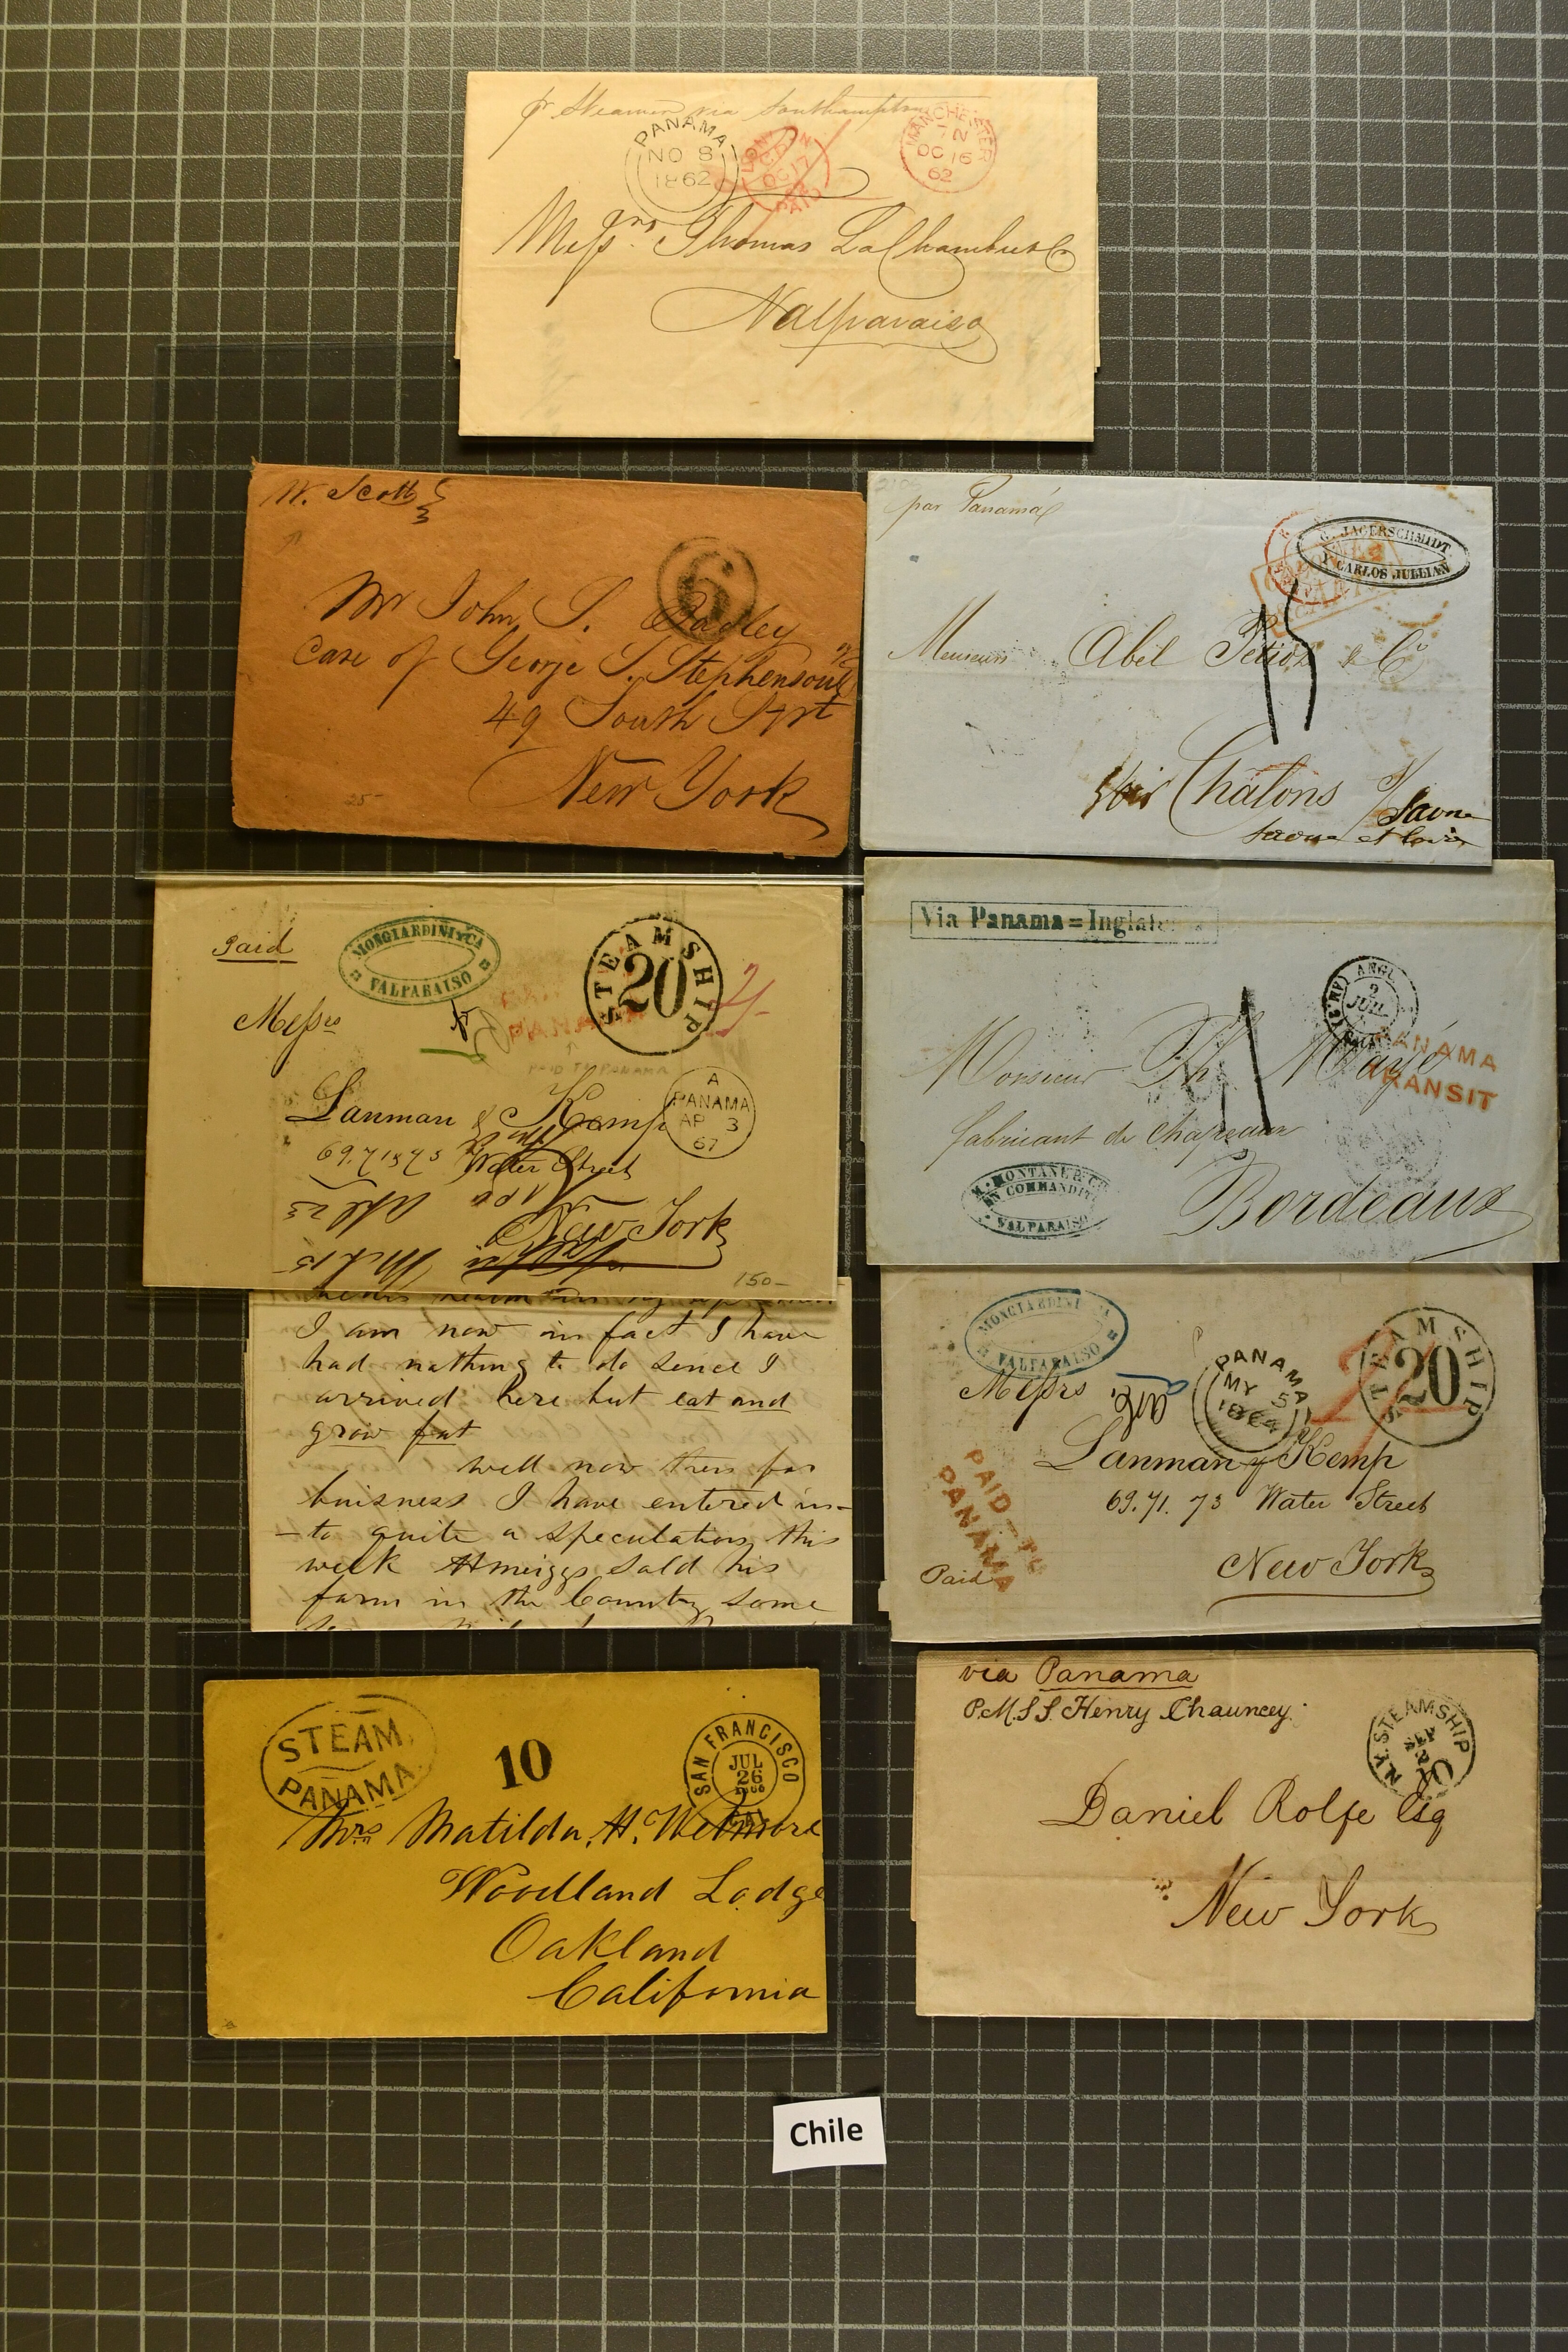 pr Steamer via Southampton
PANAMA
NO 8
1862
LONDON
OC 17
PAID
MANCHESTER
7 N
OC 16
62
Messrs Thomas LaChambre & Co
Valparaiso
W. Scott
6
Mr John S.
Care of George S. Stephenson
49 South Strt
New York
25-
par Panamá
G. JAGERSCHMIDT
Y CARLOS JULLIAN
15
Messieurs Abel Petiot & Co
Chalons s/ Saone
Saone et Loire
Paid
MONGIARDINI Y CA
VALPARAISO
STEAMSHIP
20
PANAMA
PAID TO PANAMA
Messrs
A
PANAMA
AP 3
67
Lanman & Kemp
69. 71 & 73 Water Street
New York
150-
Via Panama=Inglaterra
ANGL.
2
JUIL
PANAMA
TRANSIT
Monsieur Ph
fabricant de Chapeaux
M. MONTANE & Ca
EN COMMANDITE
VALPARAISO
Bordeaux
I am now in fact I have
had nothing to do since I
arrived here but eat and
grow fat
well now then for
buisness I have entered in-
-to quite a speculation this
week HMeiggs sold his
farm in the Country some
MONGIARDINI Y CA
VALPARAISO
STEAMSHIP
20
Messrs
PANAMA
MY 5
1864
Lanman y Kemp
69. 71. 73 Water Street
PAID-TO
PANAMA
Paid
New York
STEAM
PANAMA
10
SAN FRANCISCO
JUL
26
CAL
Mrs Matilda H. Wetmore
Woodland Lodge
Oakland
California
via Panama
P.M.S.S. Henry Chauncey.
N.Y. STEAMSHIP
SEP
10
Daniel Rolfe Esq
New York
Chile